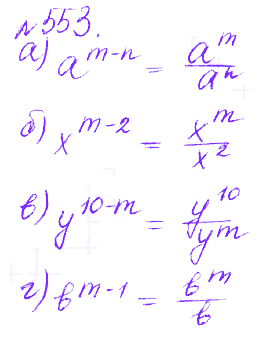 №553.
а) a^{m-n} = \frac{a^m}{a^n}
б) x^{m-2} = \frac{x^m}{x^2}
в) y^{10-m} = \frac{y^{10}}{y^m}
г) в^{m-1} = \frac{в^m}{в}